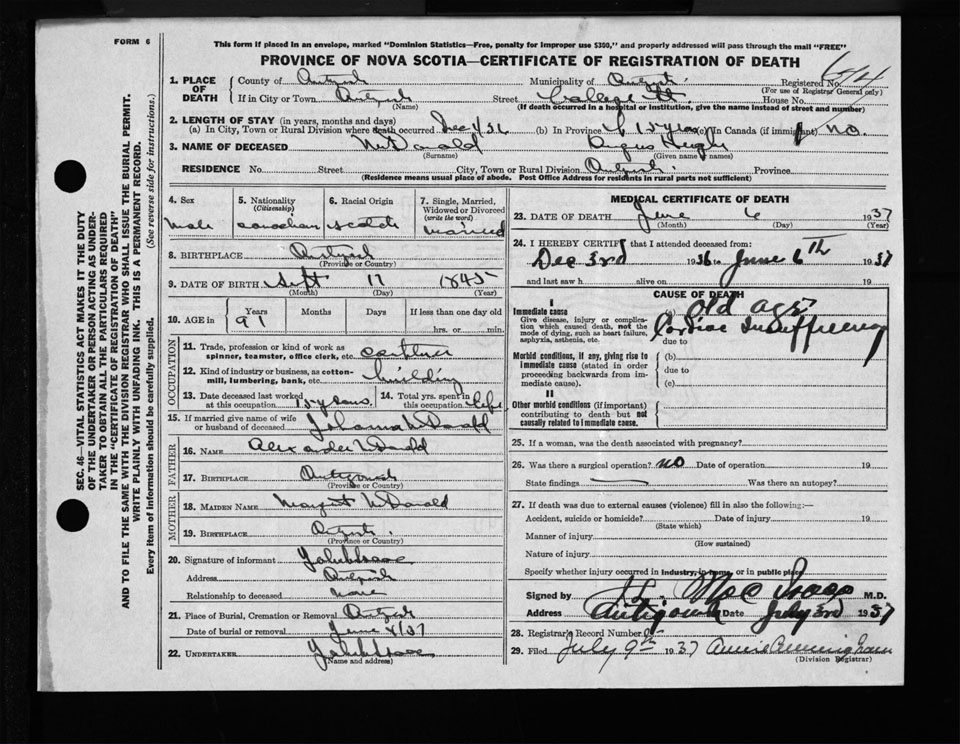 FORM 6
This form if placed in an envelope, marked "Dominion Statistics—Free, penalty for improper use $300," and properly addressed will pass through the mail "FREE"
PROVINCE OF NOVA SCOTIA—CERTIFICATE OF REGISTRATION OF DEATH
SEC. 46—VITAL STATISTICS ACT MAKES IT THE DUTY
OF THE UNDERTAKER OR PERSON ACTING AS UNDER-
TAKER TO OBTAIN ALL THE PARTICULARS REQUIRED
IN THE "CERTIFICATE OF REGISTRATION OF DEATH"
AND TO FILE THE SAME WITH THE DIVISION REGISTRAR WHO SHALL ISSUE THE BURIAL PERMIT.
WRITE PLAINLY WITH UNFADING INK. THIS IS A PERMANENT RECORD.
Every item of information should be carefully supplied. (See reverse side for instructions.)
1. PLACE OF DEATH
County of Antigonish Municipality of Antigonish Registered No.
(For use of Registrar General only)
If in City or Town Antigonish Street College St House No.
(Name) (If death occurred in a hospital or institution, give the name instead of street and number)
2. LENGTH OF STAY (in years, months and days)
(a) In City, Town or Rural Division where death occurred Dec 4 36 (b) In Province 15 years (c) In Canada (if immigrant) no.
3. NAME OF DECEASED McDonald Angus Hugh
(Surname) (Given name or names)
RESIDENCE No. Street City, Town or Rural Division Antigonish Province
(Residence means usual place of abode. Post Office Address for residents in rural parts not sufficient)
4. Sex male
5. Nationality (Citizenship) Canadian
6. Racial Origin Scotch
7. Single, Married, Widowed or Divorced (write the word) married
8. BIRTHPLACE Antigonish
(Province or Country)
9. DATE OF BIRTH Sept 17 1845
(Month) (Day) (Year)
10. AGE in Years 91 Months Days If less than one day old hrs. or min.
OCCUPATION
11. Trade, profession or kind of work as
spinner, teamster, office clerk, etc.
12. Kind of industry or business, as cotton-
mill, lumbering, bank, etc. building
13. Date deceased last worked
at this occupation 15 years
14. Total yrs. spent in
this occupation life
15. If married give name of wife
or husband of deceased Johanna McDonald
FATHER
16. NAME Alexander McDonald
17. BIRTHPLACE Antigonish
(Province or Country)
MOTHER
18. MAIDEN NAME Margret McDonald
19. BIRTHPLACE Antigonish
(Province or Country)
20. Signature of informant
Address Antigonish
Relationship to deceased none
21. Place of Burial, Cremation or Removal Antigonish
Date of burial or removal June 8/37
22. UNDERTAKER
(Name and address)
MEDICAL CERTIFICATE OF DEATH
23. DATE OF DEATH June 6 1937
(Month) (Day) (Year)
24. I HEREBY CERTIFY that I attended deceased from:
Dec 3rd 1936 to June 6th 1937
and last saw h alive on 19
CAUSE OF DEATH
I
Immediate cause (a) Old age
Give disease, injury or complica-
tion which caused death, not the
mode of dying, such as heart failure,
asphyxia, asthenia, etc.
Cardiac Insufficiency
due to
Morbid conditions, if any, giving rise to
immediate cause (stated in order
proceeding backwards from im-
mediate cause).
(b)
due to
(c)
II
Other morbid conditions (if important)
contributing to death but not
causally related to immediate cause.
25. If a woman, was the death associated with pregnancy?
26. Was there a surgical operation? no Date of operation 19
State findings Was there an autopsy?
27. If death was due to external causes (violence) fill in also the following:—
Accident, suicide or homicide? Date of injury 19
(State which)
Manner of injury
(How sustained)
Nature of injury
Specify whether injury occurred in industry, in home, or in public place
Signed by MacIsaac M.D.
Address Antigonish Date July 3rd 1937
28. Registrar's Record Number
29. Filed July 9th 1937 Annie Cunningham
(Division Registrar)